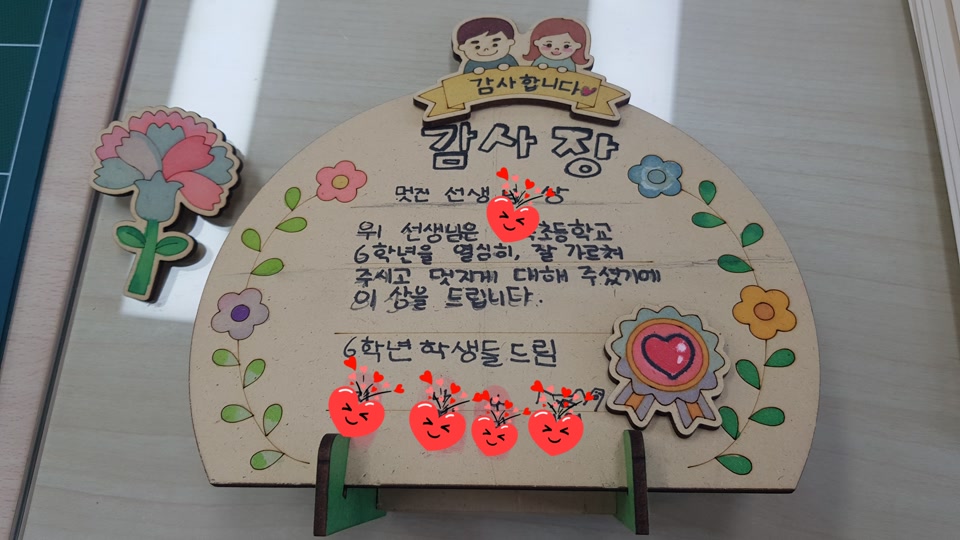 감사합니다
감사장
멋진 선생 상
위 선생님은 초등학교
6학년을 열심히, 잘 가르쳐
주시고 멋지게 대해 주셨기에
이 상을 드립니다.
6학년 학생들 드림